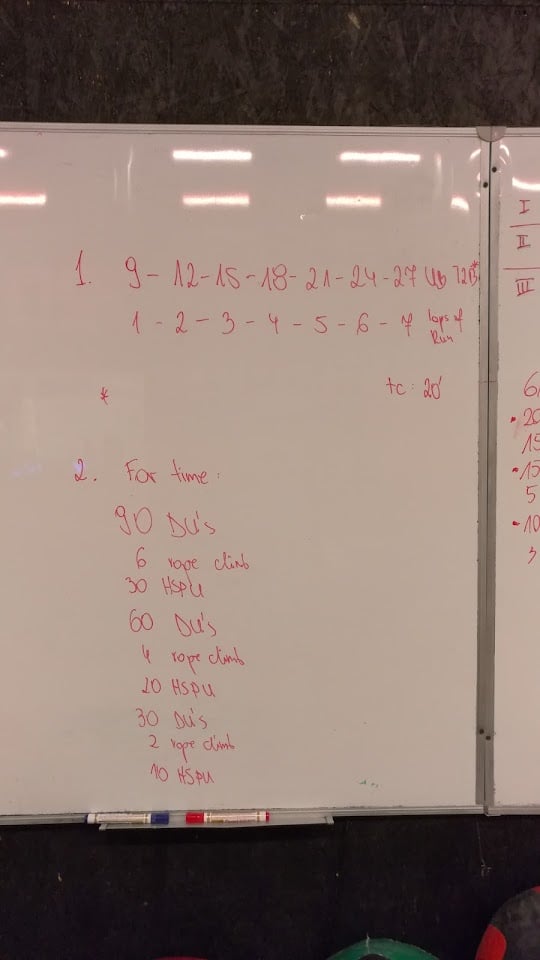 1. 9 - 12 - 15 - 18 - 21 - 24 - 27 Ub T2B*
1 - 2 - 3 - 4 - 5 - 6 - 7 laps of Run
* tc: 20'
2. For time:
90 DU's
6 rope climb
30 HSPU
60 DU's
4 rope climb
20 HSPU
30 DU's
2 rope climb
10 HSPU
I
II
III
• 20
15
• 15
5
• 10
3